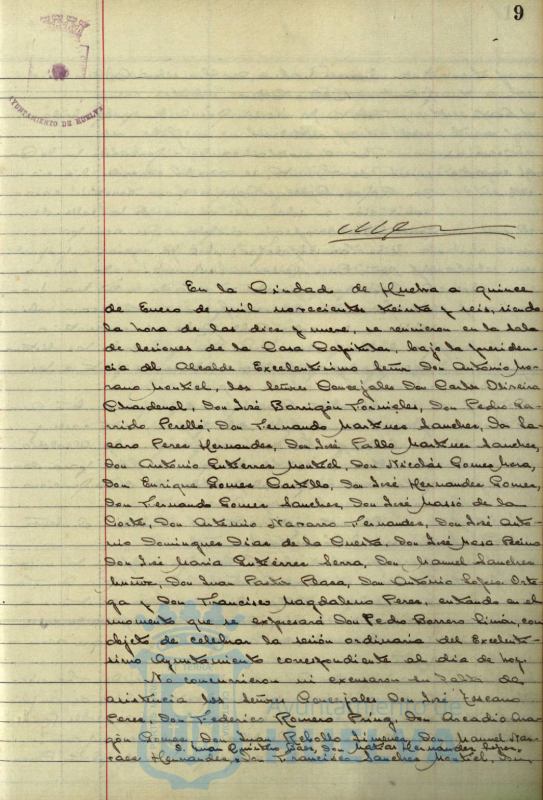 9
AYUNTAMIENTO DE HUELVA
En la Ciudad de Huelva a quince
de Enero de mil novecientos treinta y seis, siendo
la hora de las diez y nueve, se reunieron en la sala
de sesiones de la Casa Capitular, bajo la presiden-
cia del Alcalde Excelentísimo Señor Don Antonio Mo-
reno Montiel, los señores Concejales Don Carlos Oliveira
Chardenal, Don José Barrigón Fornieles, Don Pedro Ga-
rrido Perelló, Don Fernando Martinez Sanchez, Don La-
zaro Perez Hernandez, Don José Pablo Martinez Sanchez,
Don Antonio Gutiérrez Montiel, Don Nicolás Gomez Mora,
Don Enrique Gomez Castillo, Don José Hernandez Gomez,
Don Fernando Gomez Sanchez, Don José Massó de la
Corte, Don Antonio Navarro Fernandez, Don José Anto-
nio Dominguez Diaz de la Cuesta, Don José Mesa
Don José Maria Gutiérrez Serra, Don Manuel Sanchez
Muñoz, Don Juan Pastor Plaza, Don Antonio Lopez Orte-
ga y Don Francisco Magdaleno Perez, entrando en el
momento que se expresará Don Pedro Borrero Limón, con
objeto de celebrar la sesión ordinaria del Excelentí-
simo Ayuntamiento correspondiente al dia de hoy.
No concurrieron ni excusaron su falta de
asistencia los señores Concejales Don José Toscano
Perez, Don Federico Romero Pring, Don Arcadio Ara-
gón Gomez, Don Juan Rebollo Jimenez, Don Manuel Mas-
D. Juan Quintero Báez, Don Matias Hernandez
Hernandez, Don Francisco Sanchez Montiel, Don
Ayuntamiento de
HUELVA